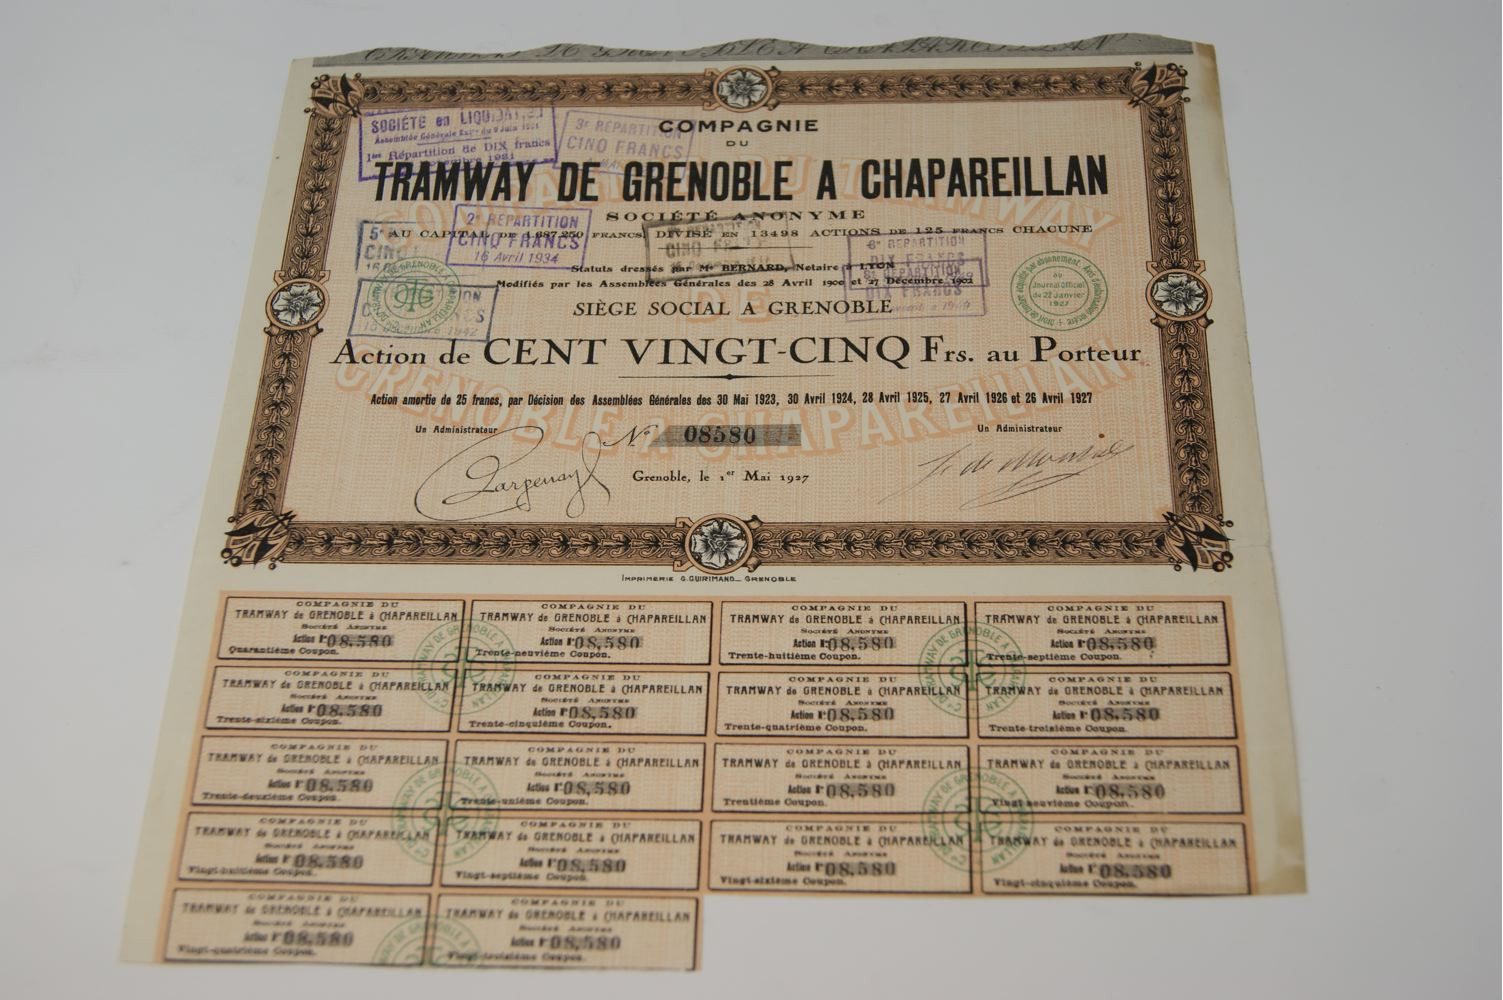 SOCIÉTÉ en LIQUIDATION
1ère Répartition de DIX francs
3e REPARTITION
CINQ FRANCS
COMPAGNIE
DU
TRAMWAY DE GRENOBLE A CHAPAREILLAN
SOCIÉTÉ ANONYME
2e REPARTITION
CINQ FRANCS
16 Avril 1934
AU CAPITAL DE 1.687.250 FRANCS, DIVISÉ EN 13498 ACTIONS DE 125 FRANCS CHACUNE
Statuts dressés par Me BERNARD, Notaire à LYON
Modifiés par les Assemblées Générales des 28 Avril 1900 et 27 Décembre 1902
SIÈGE SOCIAL A GRENOBLE
6e REPARTITION
DIX FRANCS
REPARTITION
DIX FRANCS
Journal Officiel
du 22 Janvier
1927
Action de CENT VINGT-CINQ Frs. au Porteur
Action amortie de 25 francs, par Décision des Assemblées Générales des 30 Mai 1923, 30 Avril 1924, 28 Avril 1925, 27 Avril 1926 et 26 Avril 1927
Un Administrateur
No 08580
Un Administrateur
Grenoble, le 1er Mai 1927
COMPAGNIE DU TRAMWAY
DE
GRENOBLE A CHAPAREILLAN
IMPRIMERIE G. GUIRIMAND_ GRENOBLE
COMPAGNIE DU
TRAMWAY de GRENOBLE à CHAPAREILLAN
SOCIÉTÉ ANONYME
Action No 08,580
Quarantième Coupon.
COMPAGNIE DU
TRAMWAY de GRENOBLE à CHAPAREILLAN
SOCIÉTÉ ANONYME
Action No 08,580
Trente-neuvième Coupon.
COMPAGNIE DU
TRAMWAY de GRENOBLE à CHAPAREILLAN
SOCIÉTÉ ANONYME
Action No 08,580
Trente-huitième Coupon.
COMPAGNIE DU
TRAMWAY de GRENOBLE à CHAPAREILLAN
SOCIÉTÉ ANONYME
Action No 08,580
Trente-septième Coupon.
COMPAGNIE DU
TRAMWAY de GRENOBLE à CHAPAREILLAN
SOCIÉTÉ ANONYME
Action No 08,580
Trente-sixième Coupon.
COMPAGNIE DU
TRAMWAY de GRENOBLE à CHAPAREILLAN
SOCIÉTÉ ANONYME
Action No 08,580
Trente-cinquième Coupon.
COMPAGNIE DU
TRAMWAY de GRENOBLE à CHAPAREILLAN
SOCIÉTÉ ANONYME
Action No 08,580
Trente-quatrième Coupon.
COMPAGNIE DU
TRAMWAY de GRENOBLE à CHAPAREILLAN
SOCIÉTÉ ANONYME
Action No 08,580
Trente-troisième Coupon.
COMPAGNIE DU
TRAMWAY de GRENOBLE à CHAPAREILLAN
SOCIÉTÉ ANONYME
Action No 08,580
Trente-deuxième Coupon.
COMPAGNIE DU
TRAMWAY de GRENOBLE à CHAPAREILLAN
SOCIÉTÉ ANONYME
Action No 08,580
Trente-unième Coupon.
COMPAGNIE DU
TRAMWAY de GRENOBLE à CHAPAREILLAN
SOCIÉTÉ ANONYME
Action No 08,580
Trentième Coupon.
COMPAGNIE DU
TRAMWAY de GRENOBLE à CHAPAREILLAN
SOCIÉTÉ ANONYME
Action No 08,580
Vingt-neuvième Coupon.
COMPAGNIE DU
TRAMWAY de GRENOBLE à CHAPAREILLAN
SOCIÉTÉ ANONYME
Action No 08,580
Vingt-huitième Coupon.
COMPAGNIE DU
TRAMWAY de GRENOBLE à CHAPAREILLAN
SOCIÉTÉ ANONYME
Action No 08,580
Vingt-septième Coupon.
COMPAGNIE DU
TRAMWAY de GRENOBLE à CHAPAREILLAN
SOCIÉTÉ ANONYME
Action No 08,580
Vingt-sixième Coupon.
COMPAGNIE DU
TRAMWAY de GRENOBLE à CHAPAREILLAN
SOCIÉTÉ ANONYME
Action No 08,580
Vingt-cinquième Coupon.
COMPAGNIE DU
TRAMWAY de GRENOBLE à CHAPAREILLAN
SOCIÉTÉ ANONYME
Action No 08,580
Vingt-quatrième Coupon.
COMPAGNIE DU
TRAMWAY de GRENOBLE à CHAPAREILLAN
SOCIÉTÉ ANONYME
Action No 08,580
Vingt-troisième Coupon.